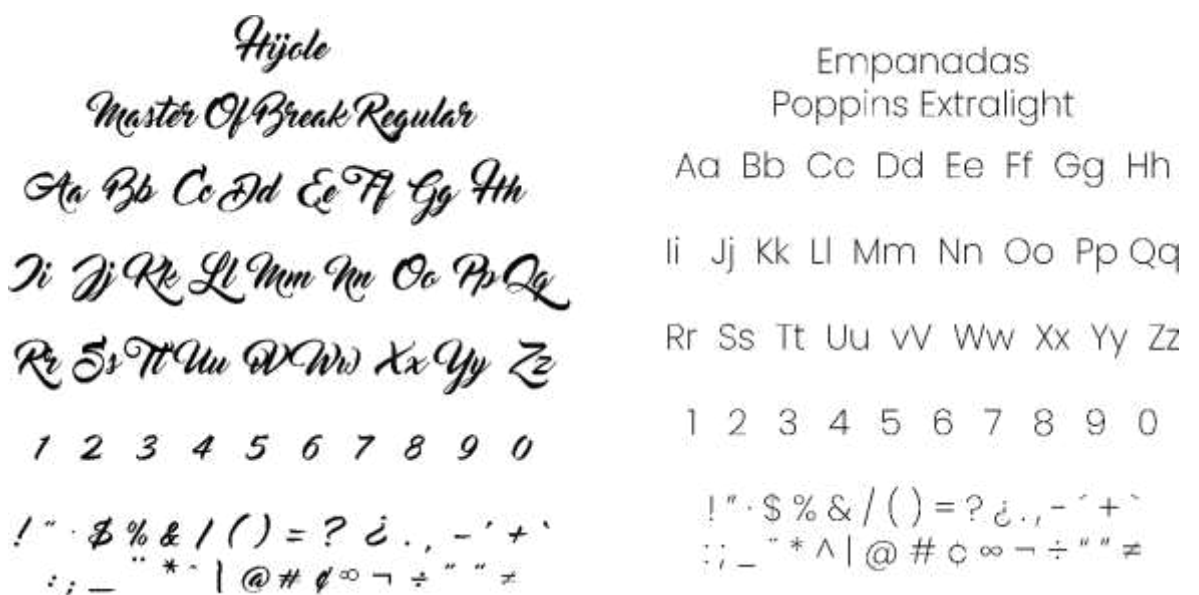 Hijole
Master Of Break Regular
Aa Bb Cc Dd Ee Ff Gg Hh
Ii Jj Kk Ll Mm Nn Oo Pp Qq
Rr Ss Tt Uu vV Ww Xx Yy Zz
1 2 3 4 5 6 7 8 9 0
! " · $ % & / ( ) = ? ¿ . , - ´ + `
: ; _ ¨ * ^ | @ # ¢ ∞ ¬ ÷ " " ≠
Empanadas
Poppins Extralight
Aa Bb Cc Dd Ee Ff Gg Hh
Ii Jj Kk Ll Mm Nn Oo Pp Qq
Rr Ss Tt Uu vV Ww Xx Yy Zz
1 2 3 4 5 6 7 8 9 0
! " · $ % & / ( ) = ? ¿ . , - ´ + `
: ; _ ¨ * ^ | @ # ¢ ∞ ¬ ÷ " " ≠